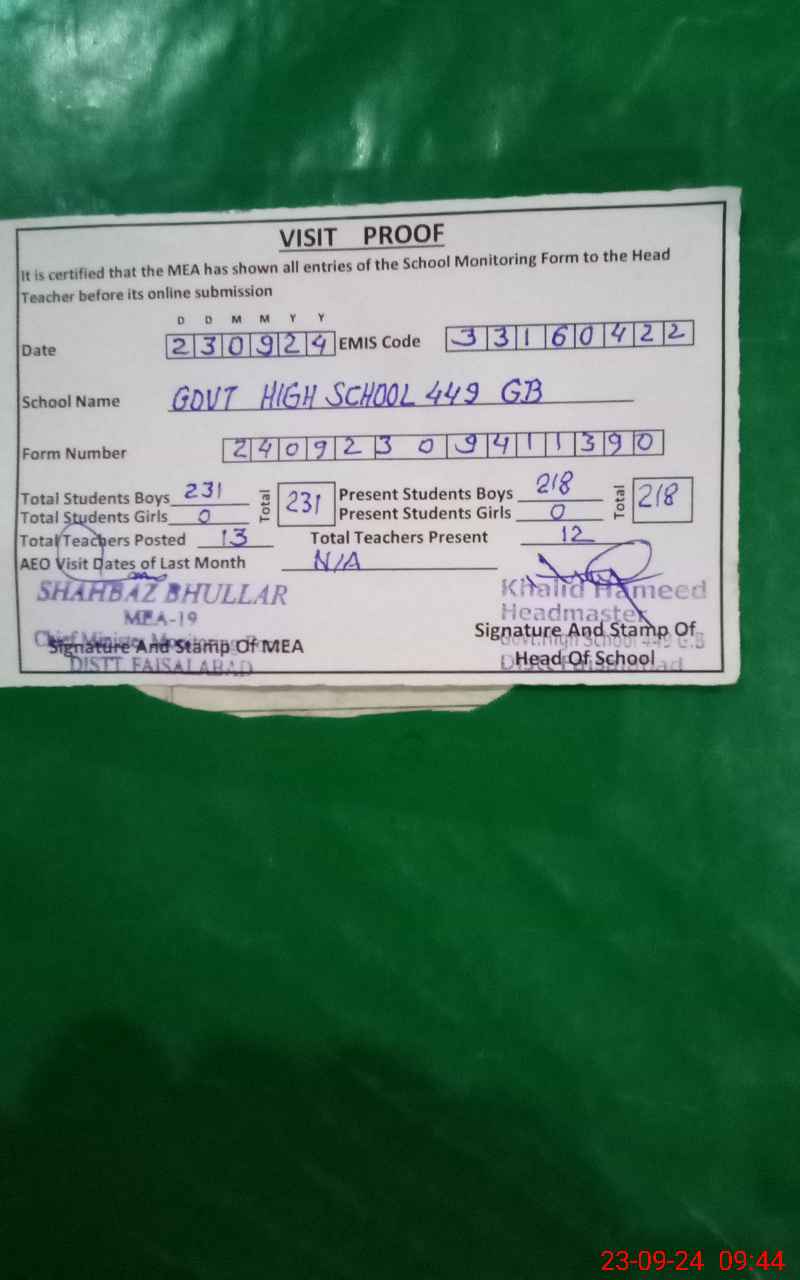 VISIT PROOF
It is certified that the MEA has shown all entries of the School Monitoring Form to the Head
Teacher before its online submission
D D M M Y Y
Date 230924 EMIS Code 33160422
School Name GOVT HIGH SCHOOL 449 GB
Form Number 240923094111390
Total Students Boys 231 Total 231 Present Students Boys 218 Total 218
Total Students Girls 0 Present Students Girls 0
Total Teachers Posted 13 Total Teachers Present 12
AEO Visit Dates of Last Month N/A
SHAHBAZ BHULLAR Khalid Hameed
MEA-19 Headmaster
Chief Minister Monitoring
Signature And Stamp Of MEA Signature And Stamp Of
Govt. High School 449 G.B
DISTT FAISALABAD Head Of School
Distt Faisalabad
23-09-24 09:44